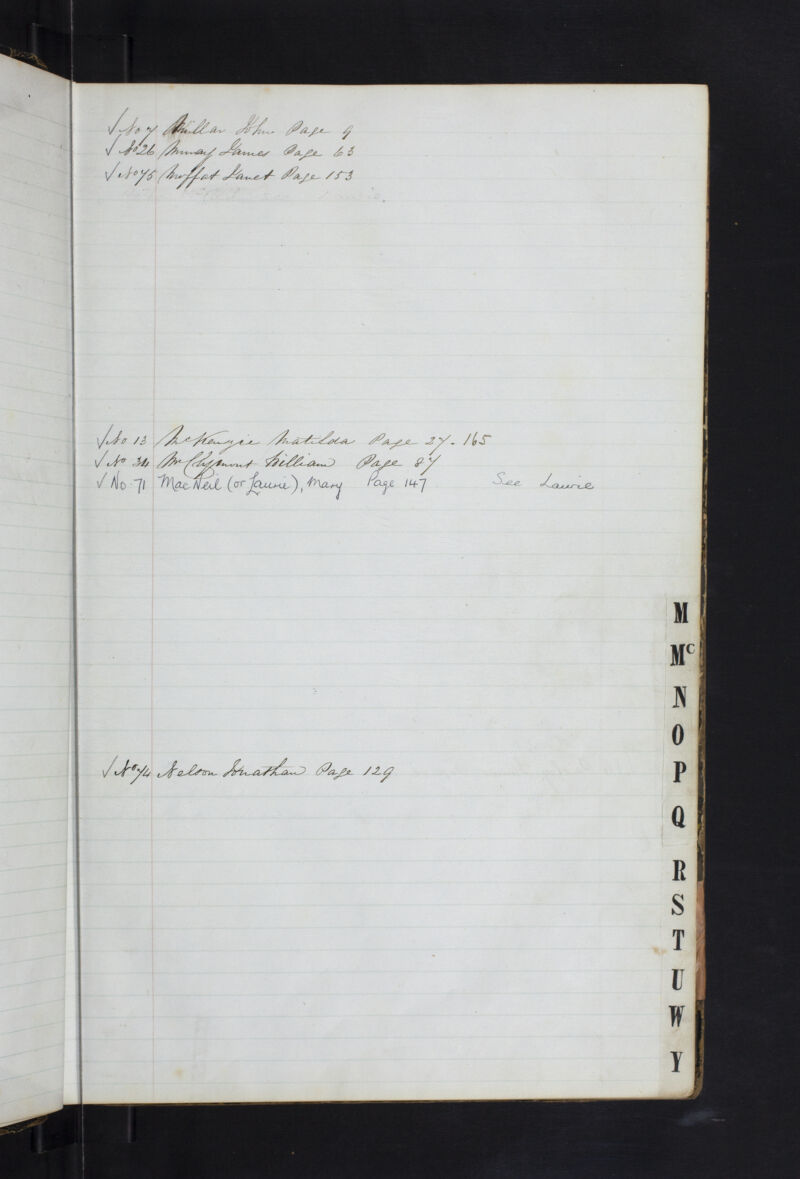 ✓ No 7 Millar John Page 9
✓ No 26 Murray James Page 63
✓ No 75 Moffat Janet Page 153
✓ No 13 McKenzie Matilda Page 27 - 165
✓ No 34 McClymont William Page 87
✓ No 71 MacNeil (or Laurie), Mary Page 147 See Laurie
✓ No 74 Nelson Jonathan Page 129
M
Mc
N
O
P
Q
R
S
T
U
W
Y